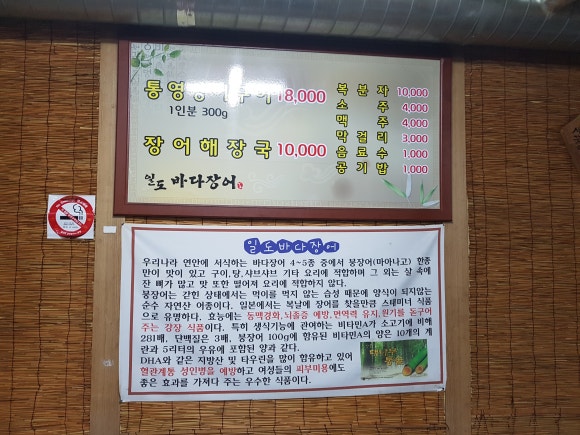 통영 18,000
1인분 300g
장어해장국 10,000
일도 바다장어
복분자 10,000
소주 4,000
맥주 4,000
막걸리 3,000
음료수 1,000
공기밥 1,000
일도바다장어
우리나라 연안에 서식하는 바다장어 4~5종 중에서 붕장어(마아나고) 한종
만이 맛이 있고 구이,탕,샤브샤브 기타 요리에 적합하며 그 외는 살 속에
잔 뼈가 많고 맛 또한 떨어져 요리에 적합하지 않다.
붕장어는 갇힌 상태에서는 먹이를 먹지 않는 습성 때문에 양식이 되지않는
순수 자연산 어종이다. 일본에서는 복날에 장어를 찾을만큼 스태미너 식품
으로 유명하다. 효능에는 동맥경화,뇌졸중 예방,면역력 유지,원기를 돋구어
주는 강장 식품이다. 특히 생식기능에 관여하는 비타민A가 소고기에 비해
281배, 단백질은 3배, 붕장어 100g에 함유된 비타민A의 양은 10개의 계
란과 5리터의 우유에 포함된 양과 같다.
DHA와 같은 지방산 및 타우린을 많이 함유하고 있어
혈관계통 성인병을 예방하고 여성들의 피부미용에도
좋은 효과를 가져다 주는 우수한 식품이다.